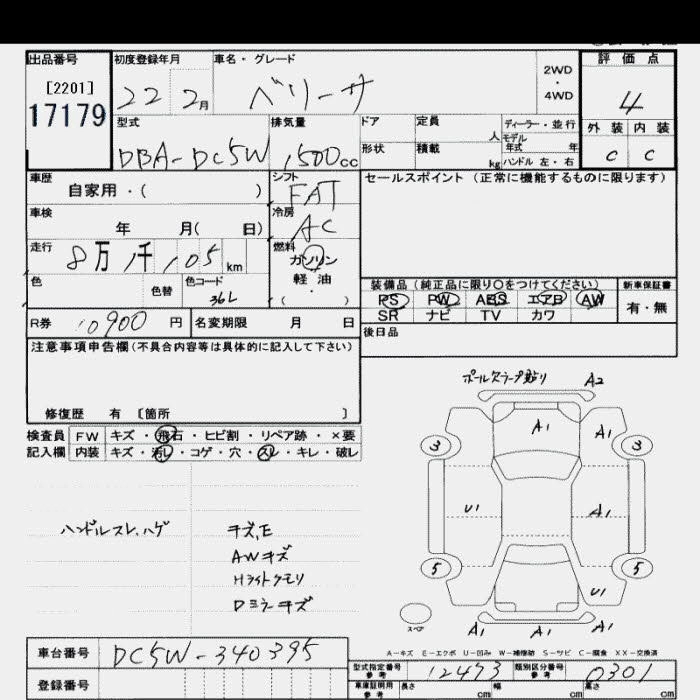 出品番号 初度登録年月 車名・グレード 評価点
[2201] 22 2月 ベリーサ 2WD・4WD 4
17179 型式 排気量 ドア 定員 人 ディーラー・並行 外装 内装
DBA-DC5W 1500cc 形状 積載 kg モデル年式 年 C C
ハンドル 左・右
車歴 シフト セールスポイント (正常に機能するものに限ります)
自家用・( ) FAT
車検 冷房
年 月( 日) AC
走行 燃料
8万 1千 105 km ガソリン
色 色替 色コード 軽・油
36L ( )
装備品 (純正品に限り○をつけてください) 新車保証書
PS PW ABS エアB AW 有・無
SR ナビ TV カワ
R券 10900 円 名変期限 月 日 後日品
注意事項申告欄(不具合内容等は具体的に記入して下さい)
修復歴 有 〔箇所 〕
検査員 FW キズ・飛石・ヒビ割・リペア跡・×要
記入欄 内装 キズ・汚レ・コゲ・穴・スレ・キレ・破レ
ポールスラープ貼り A2
A1 A1
3 3
U1 A1
5 5
U1
スペア A1 A1 A1
ハンドルスレ、ハゲ キズ,E
AWキズ
Hライトクモリ
Dミラーキズ
A-キズ E-エクボ U-凹み W-補修跡 S-サビ C-腐食 XX-交換済
車台番号 DC5W-340395 型式指定番号 参考 12473 類別区分番号 参考 0301
登録番号 車庫証明用 参考 長さ cm 幅 cm 高さ cm